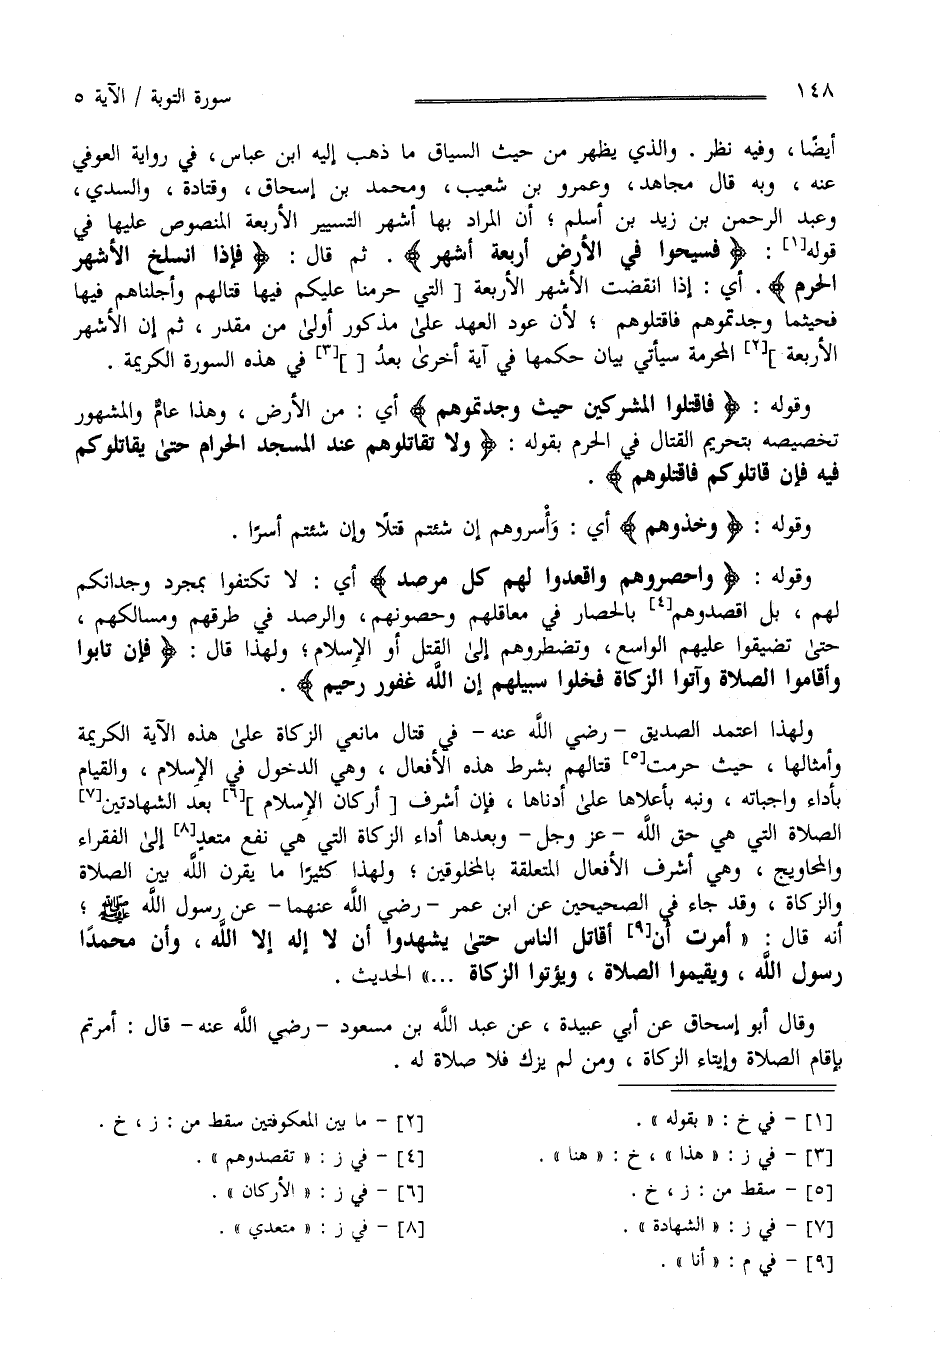 ١٤٨ سورة التوبة / الآية ٥
أيضًا، وفيه نظر . والذي يظهر من حيث السياق ما ذهب إليه ابن عباس، في رواية العوفي
عنه ، وبه قال مجاهد، وعمرو بن شعيب، ومحمد بن إسحاق، وقتادة ، والسدي،
وعبد الرحمن بن زيد بن أسلم ؛ أن المراد بها أشهر التسيير الأربعة المنصوص عليها في
قوله[١] : ﴿ فسيحوا في الأرض أربعة أشهر ﴾ . ثم قال : ﴿ فإذا انسلخ الأشهر
الحرم ﴾ . أي : إذا انقضت الأشهر الأربعة [ التي حرمنا عليكم فيها قتالهم وأجلناهم فيها
فحيثما وجدتموهم فاقتلوهم ؛ لأن عود العهد علىٰ مذكور أولىٰ من مقدر ، ثم إن الأشهر
الأربعة ][٢] المحرمة سيأتي بيان حكمها في آية أخرىٰ بعدُ [ ][٣] في هذه السورة الكريمة .
وقوله : ﴿ فاقتلوا المشركين حيث وجدتموهم ﴾ أي : من الأرض ، وهذا عامٌّ والمشهور
تخصيصه بتحريم القتال في الحرم بقوله : ﴿ ولا تقاتلوهم عند المسجد الحرام حتىٰ يقاتلوكم
فيه فإن قاتلوكم فاقتلوهم ﴾ .
وقوله : ﴿ وخذوهم ﴾ أي : وَأْسروهم إن شئتم قتلًا وإن شئتم أسرًا .
وقوله : ﴿ واحصروهم واقعدوا لهم كل مرصد ﴾ أي : لا تكتفوا بمجرد وجدانكم
لهم ، بل اقصدوهم[٤] بالحصار في معاقلهم وحصونهم، والرصد في طرقهم ومسالكهم ،
حتىٰ تضيقوا عليهم الواسع، وتضطروهم إلىٰ القتل أو الإسلام؛ ولهذا قال : ﴿ فإن تابوا
وأقاموا الصلاة وآتوا الزكاة فخلوا سبيلهم إن اللَّه غفور رحيم ﴾ .
ولهذا اعتمد الصديق – رضي اللَّه عنه – في قتال مانعي الزكاة علىٰ هذه الآية الكريمة
وأمثالها ، حيث حرمت[٥] قتالهم بشرط هذه الأفعال ، وهي الدخول في الإسلام ، والقيام
بأداء واجباته ، ونبه بأعلاها علىٰ أدناها ، فإن أشرف [ أركان الإسلام ][٦] بعد الشهادتين[٧]
الصلاة التي هي حق اللَّه –عز وجل– وبعدها أداء الزكاة التي هي نفع متعدٍ[٨] إلىٰ الفقراء
والمحاويج ، وهي أشرف الأفعال المتعلقة بالمخلوقين ؛ ولهذا كثيرًا ما يقرن اللَّه بين الصلاة
والزكاة ، وقد جاء في الصحيحين عن ابن عمر – رضي اللَّه عنهما – عن رسول اللَّه ﷺ ؛
أنه قال : « أمرت أن[٩] أقاتل الناس حتىٰ يشهدوا أن لا إله إلا اللَّه ، وأن محمدًا
رسول اللَّه ، ويقيموا الصلاة ، ويؤتوا الزكاة ...» الحديث .
وقال أبو إسحاق عن أبي عبيدة ، عن عبد اللَّه بن مسعود – رضي اللَّه عنه – قال : أمرتم
بإقام الصلاة وإيتاء الزكاة ، ومن لم يزك فلا صلاة له .
[١] – في خ : « بقوله » . [٢] – ما بين المعكوفتين سقط من : ز ، خ .
[٣] – في ز : « هذا » ، خ : « هنا » . [٤] – في ز : « تقصدوهم » .
[٥] – سقط من : ز ، خ . [٦] – في ز : « الأركان » .
[٧] – في ز : « الشهادة » . [٨] – في ز : « متعدي » .
[٩] – في م : « أنا » .